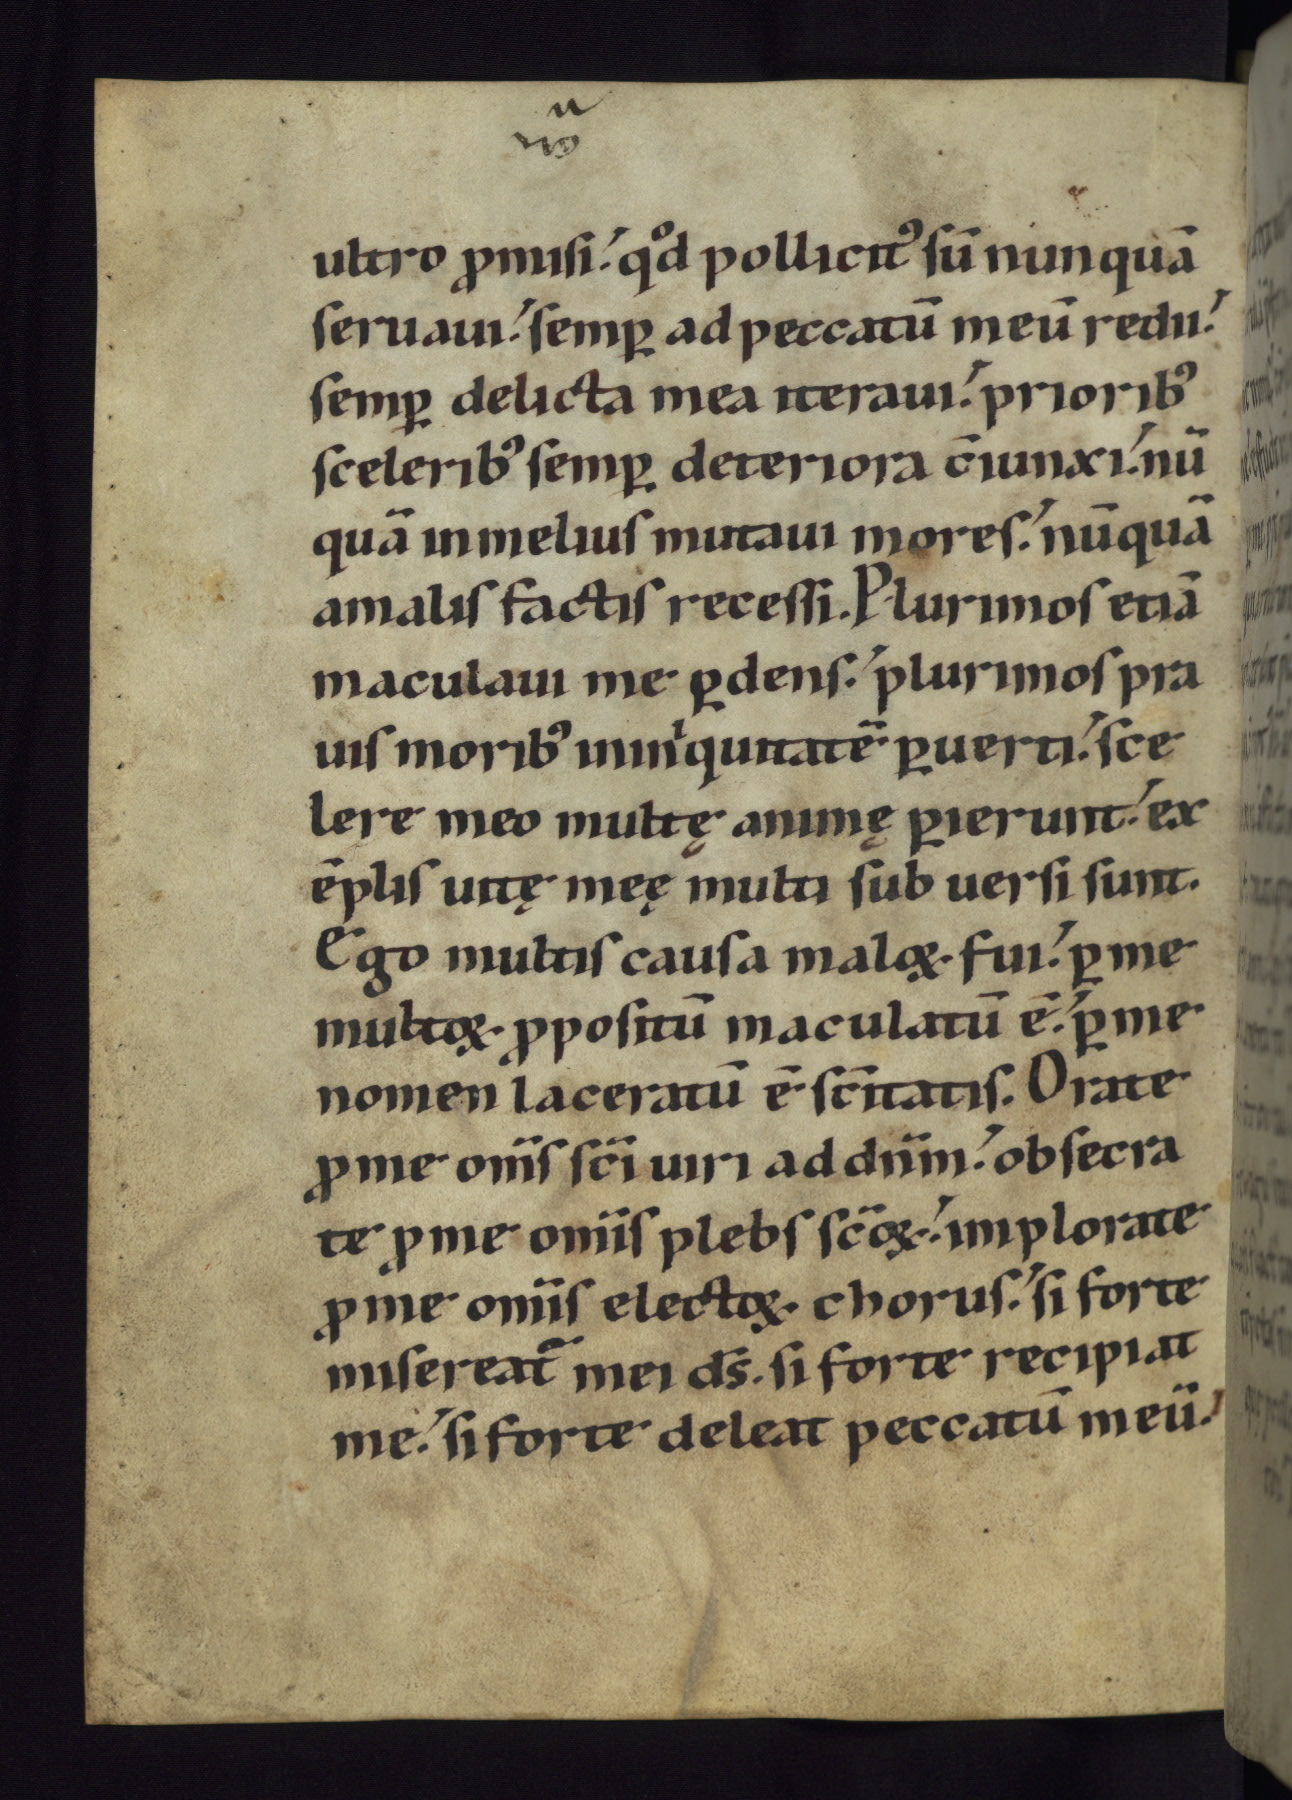 ultro ꝓmisi. qͦd pollicitꝰ sū nunquā
seruaui. semꝑ ad peccatū meū redii.
semꝑ delicta mea iteraui. prioribꝰ
sceleribꝰ semꝑ deteriora c̄iunxi. nū
quā in melius mutaui mores. nūquā
a malis factis recessi. Plurimos etiā
maculaui me ꝑdens. plurimos pra
uis moribꝰ in iniquitatē ꝑuerti. sce
lere meo multę animę ꝑierunt. ex
ēplis uitę meę multi sub uersi sunt.
Ego multis causa maloꝝ fui. ꝑ me
multoꝝ ꝓpositū maculatū ē. ꝑ me
nomen laceratū ē sc̄itatis. Orate
ꝓ me om̄s sc̄i uiri ad dn̄m. obsecra
te ꝓ me om̄is plebs sc̄oꝝ. implorate
ꝓ me om̄is electoꝝ chorus. si forte
misereat᷑ mei ds̄. si forte recipiat
me. si forte deleat peccatū meū.